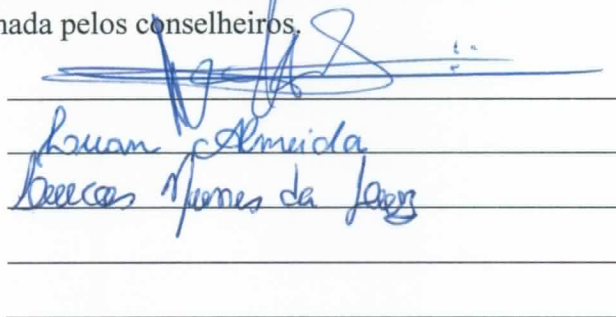 nada pelos conselheiros.
Luan Almeida
Lucas Nunes da